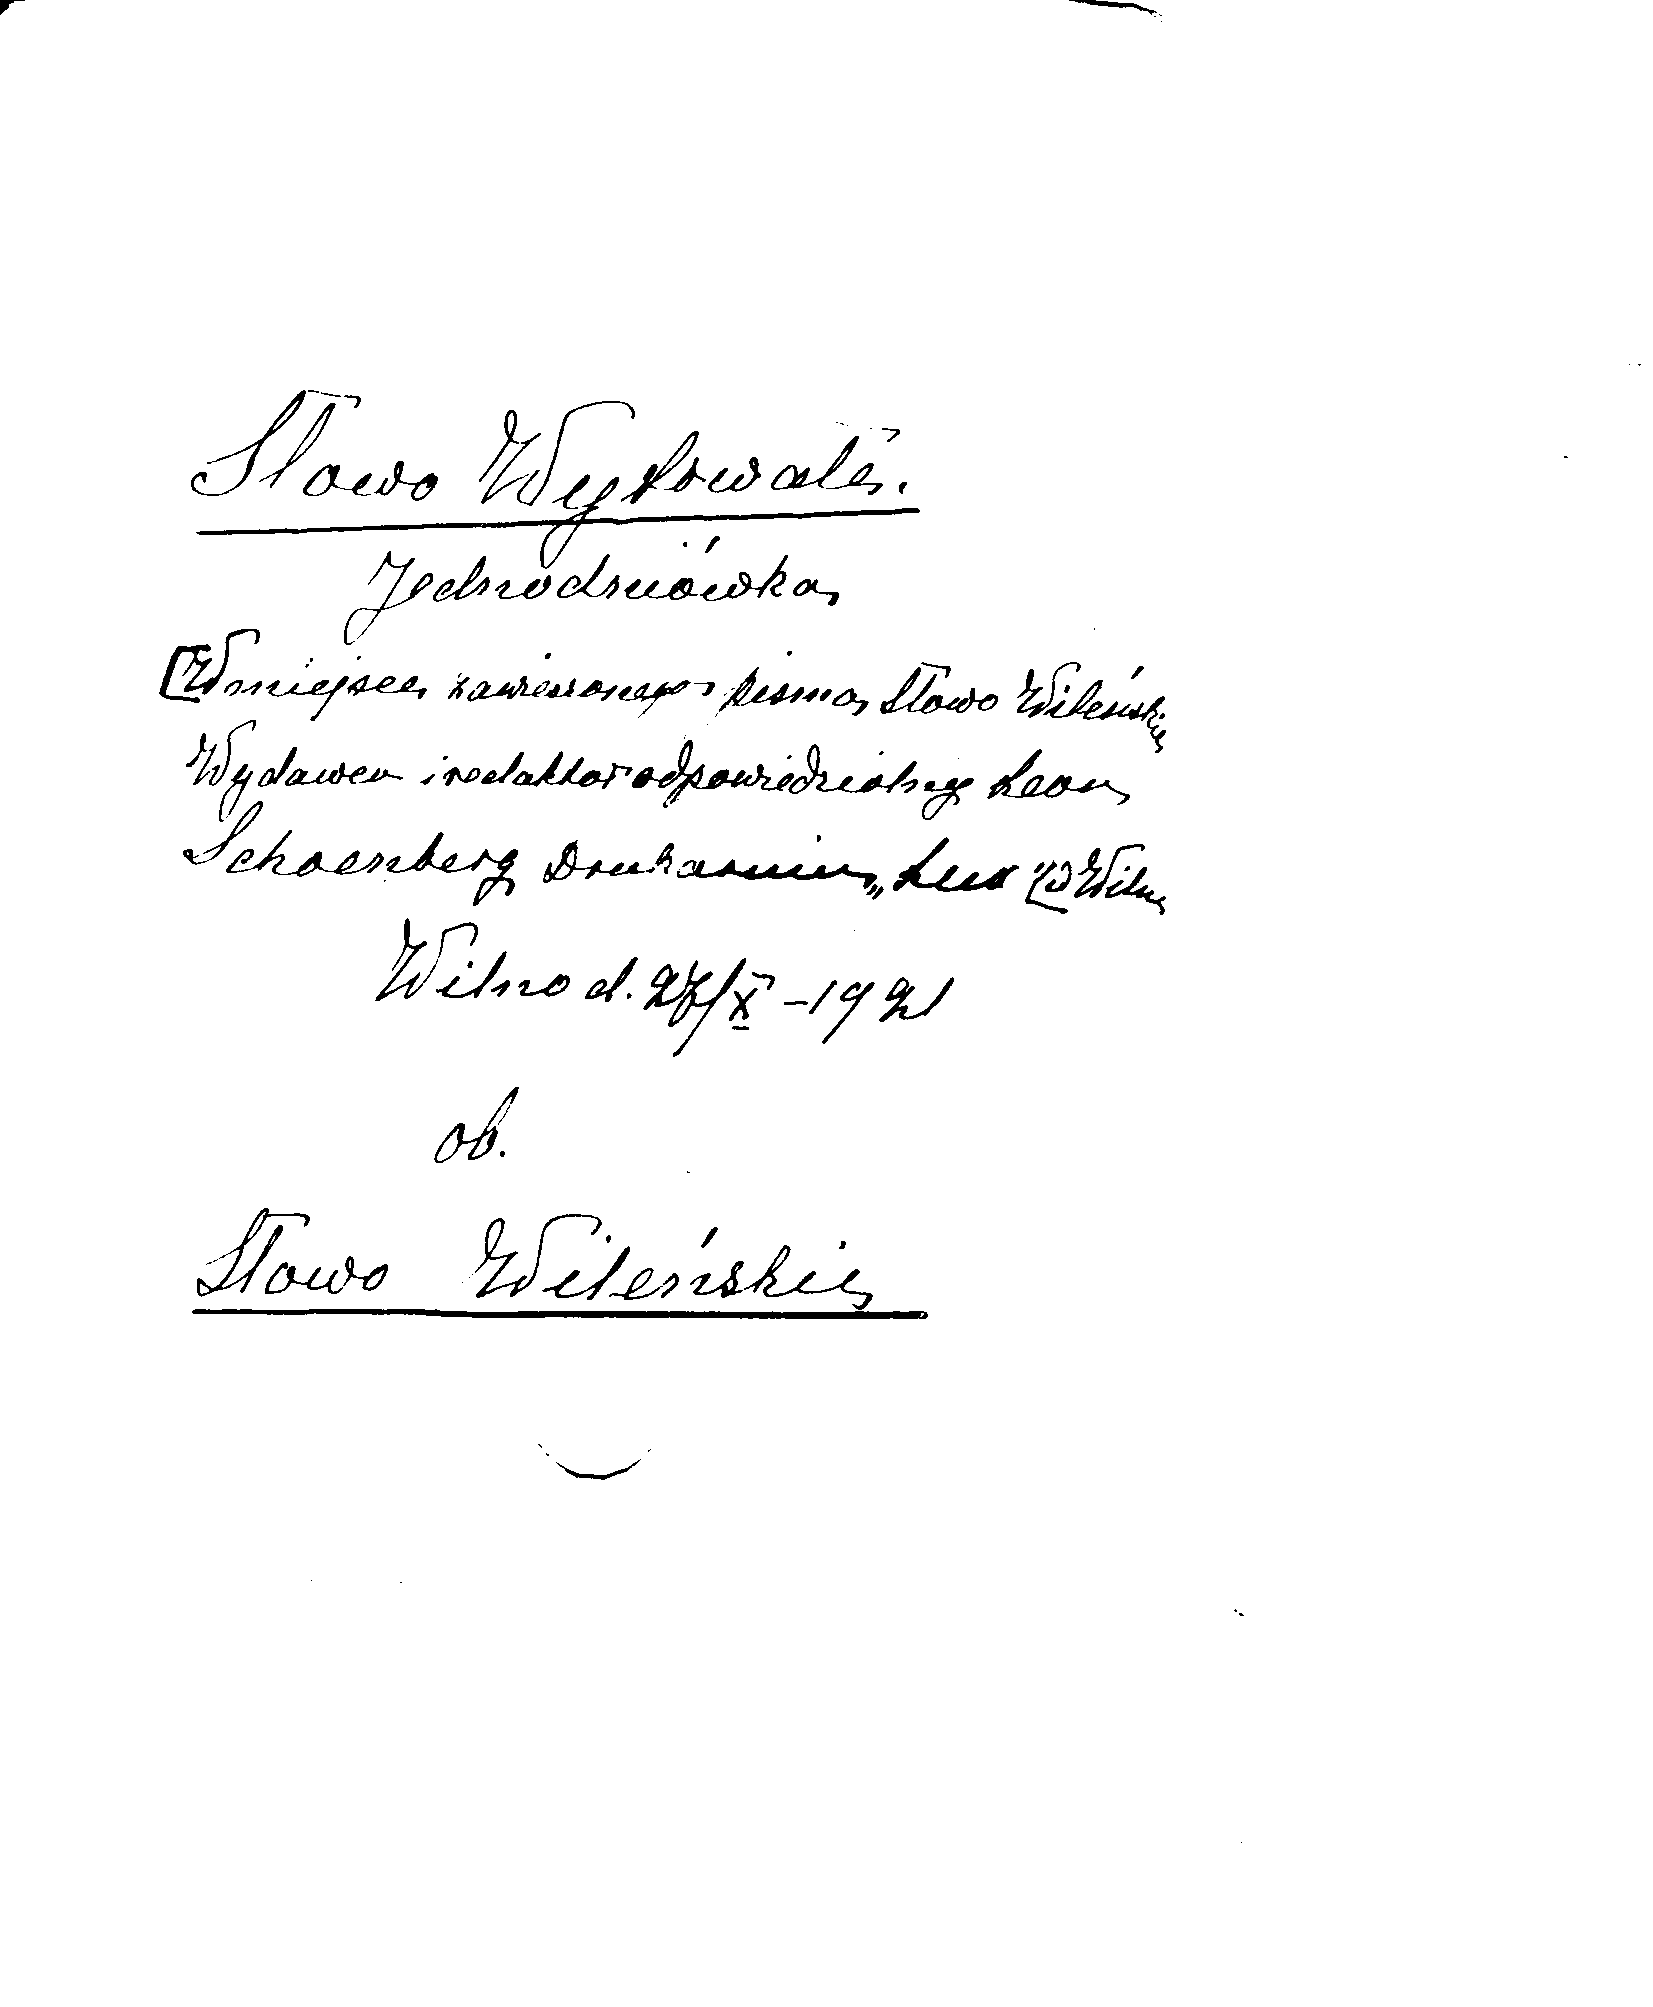 Słowo Wytrwałe.
Jednodniówka
[W miejsce zawieszonego pisma Słowo Wileńskie
Wydawca i redaktor odpowiedzialny Leon
Schoenberg Drukarnia „Lux" w Wilnie
Wilno d. 27/X - 1921
ob.
Słowo Wileńskie